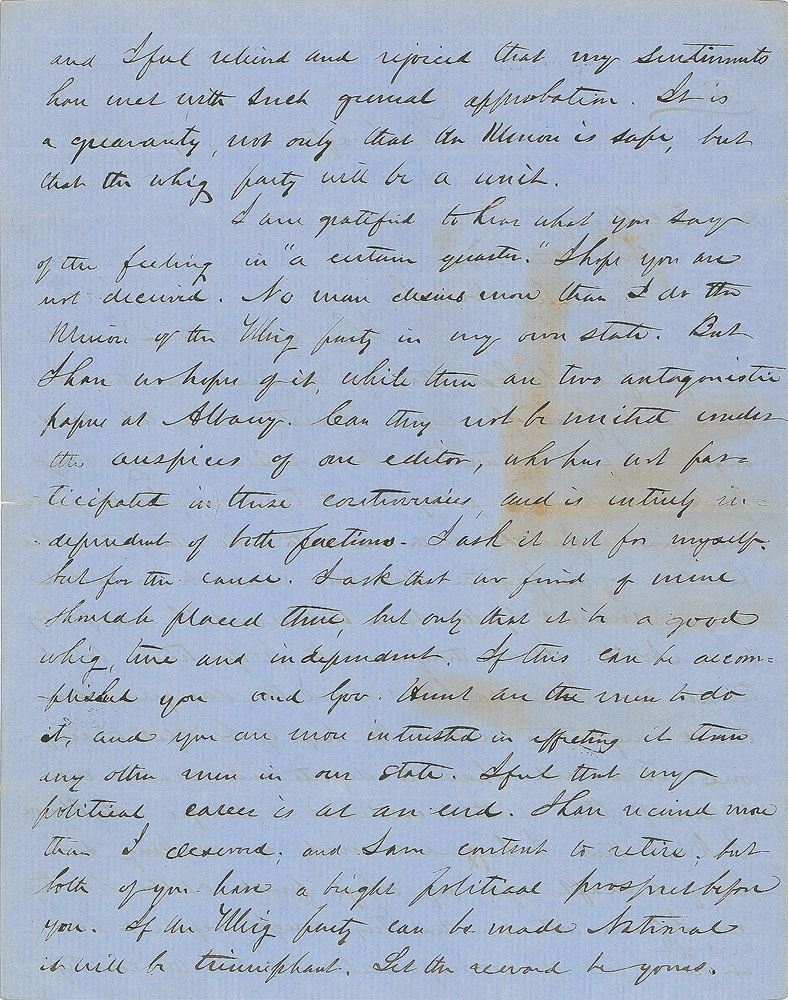 and I feel relieved and rejoiced that my sentiments
have met with such general approbation. It is
a guaranty, not only that the Union is safe, but
that the whig party will be a unit.
I am gratified to hear what you say
of the feeling in "a certain quarter." I hope you are
not deceived. No man desires more than I do the
Union of the Whig party in my own state. But
I have no hope of it, while there are two antagonistic
papers at Albany. Can they not be united under
the auspices of one editor, who has not par=
ticipated in these controversies, and is entirely in=
dependent of both factions. I ask it not for myself,
but for the cause. I ask that no friend of mine
should be placed there, but only that it be a good
whig, true and independent. If this can be accom=
plished you and Gov. Hunt are the men to do
it, and you are more interested in effecting it than
any other men in our state. I feel that my
political career is at an end. I have received more
than I deserved, and I am content to retire, but
both of you have a bright political prospect before
you. If the Whig party can be made National
it will be triumphant. Let the reward be yours.